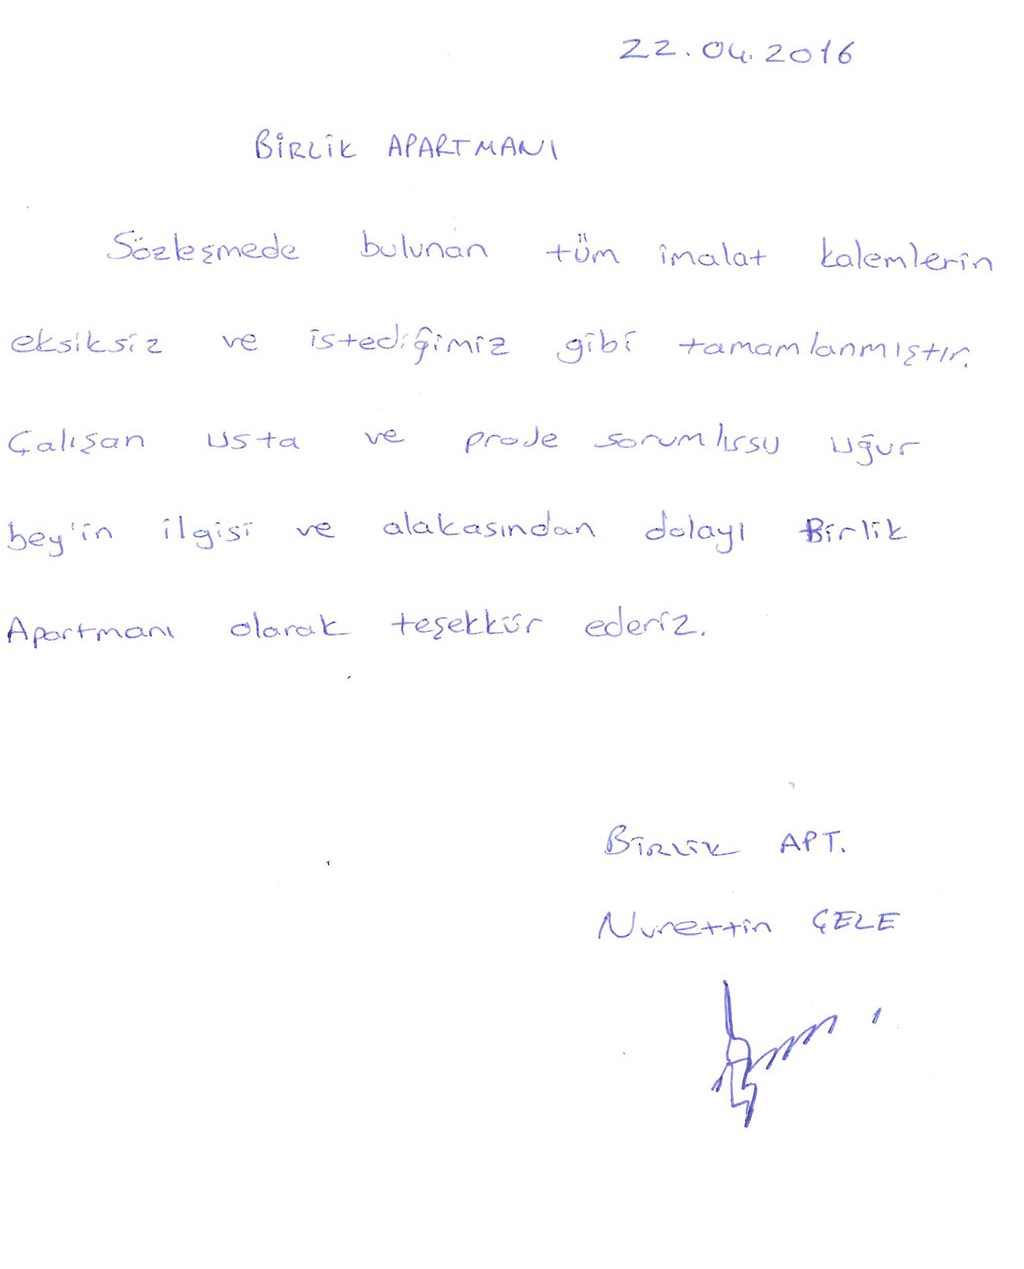 22.04.2016
BİRLİK APARTMANI
Sözleşmede bulunan tüm imalat kalemlerin
eksiksiz ve istediğimiz gibi tamamlanmıştır.
Çalışan usta ve proje sorumlusu uğur
bey'in ilgisi ve alakasından dolayı Birlik
Apartmanı olarak teşekkür ederiz.
BİRLİK APT.
Nurettin ÇELE